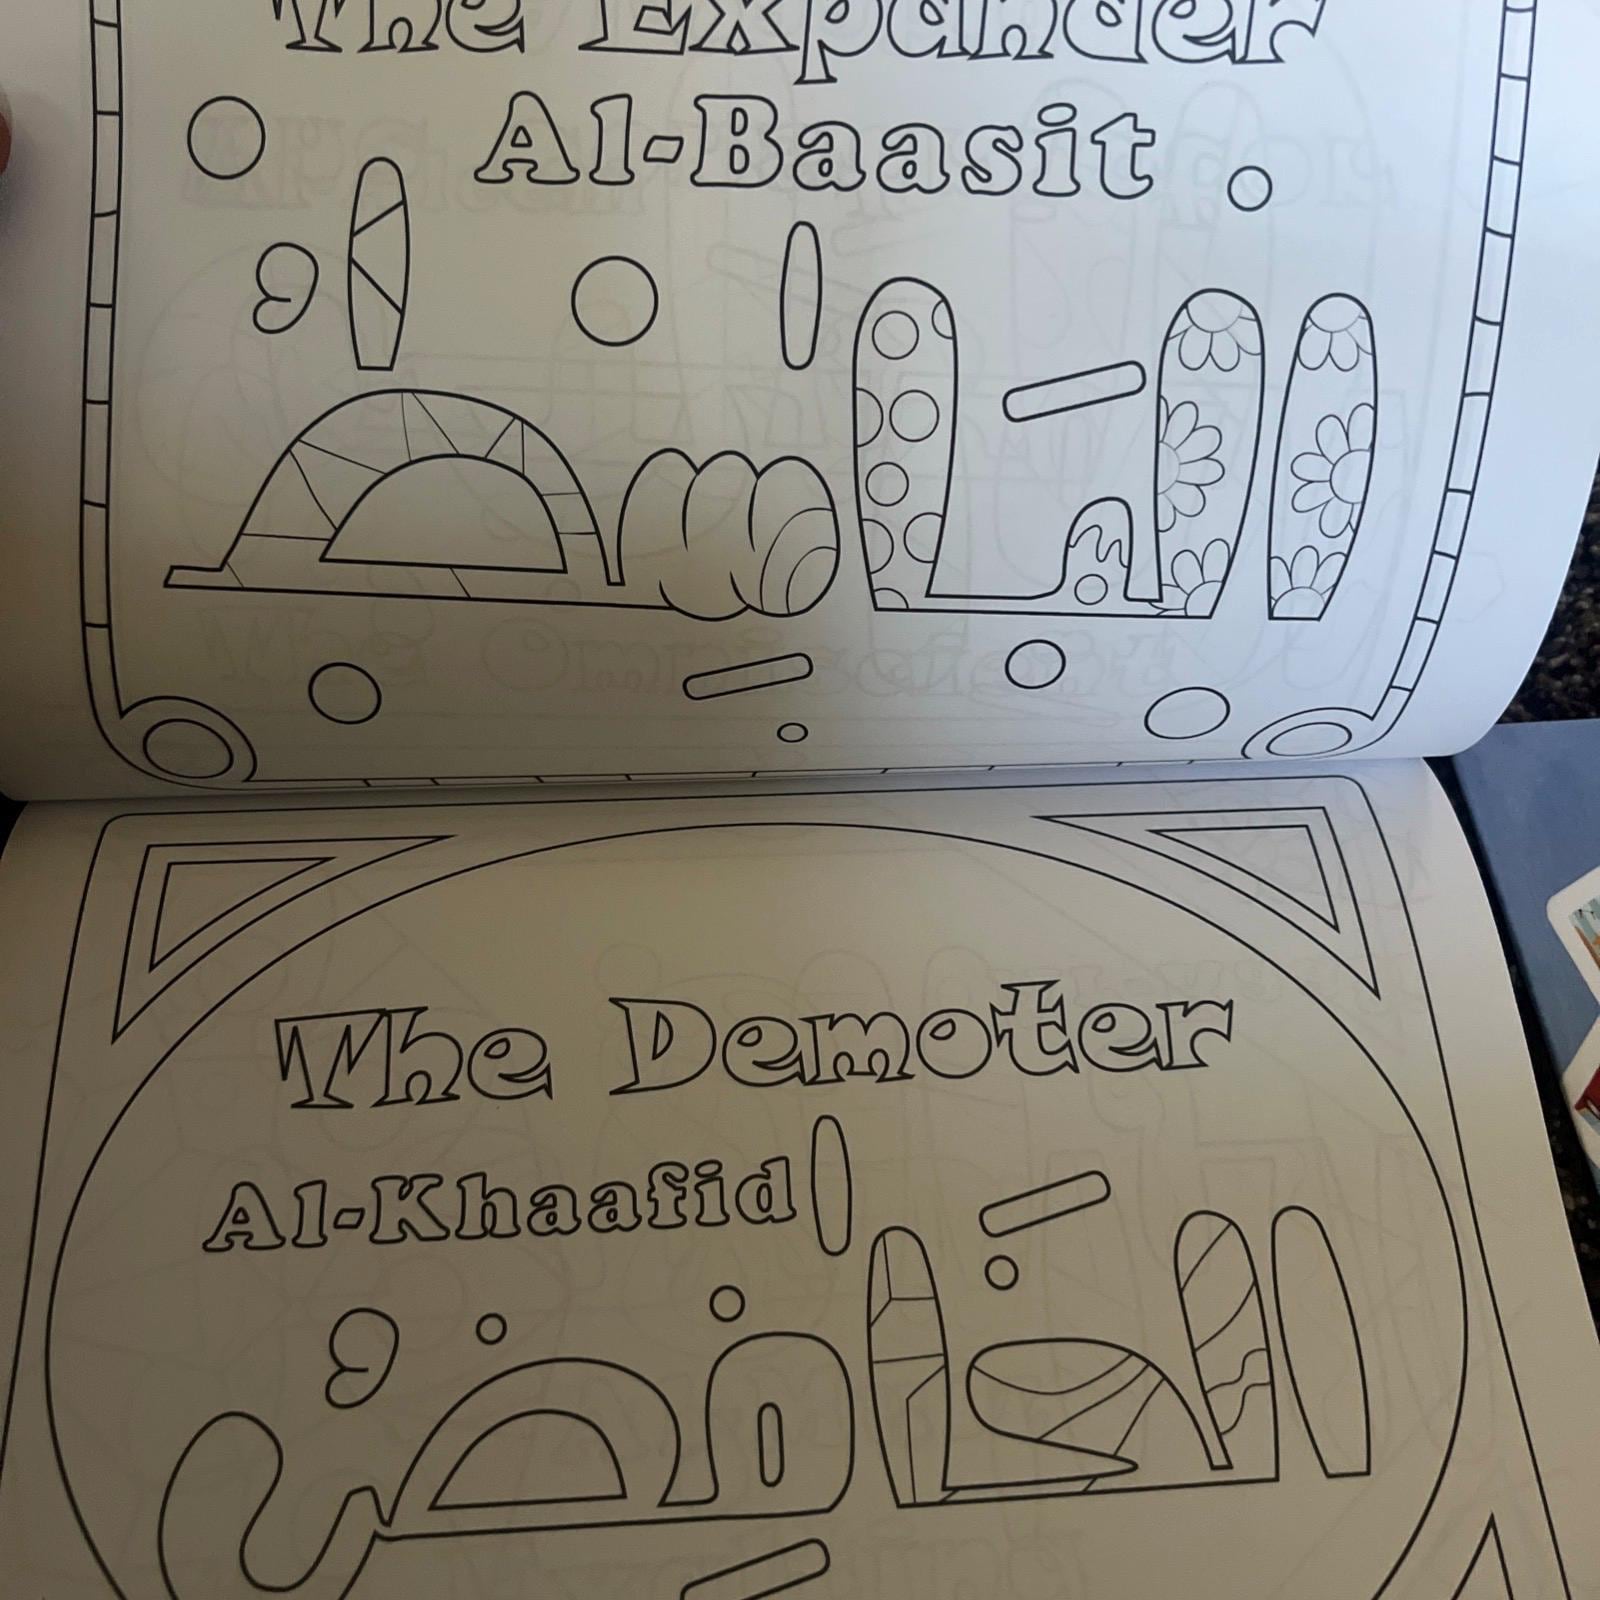 The Expander
Al-Baasit
البَاسِطُ
The Demoter
Al-Khaafid
الخَافِضُ